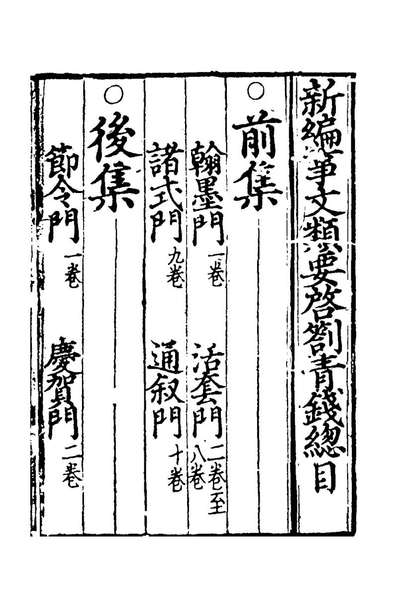 新編事文類要啓劄青錢總目
○前集
翰墨門一卷　活套門二卷至八卷
諸式門九卷　通叙門十卷
○後集
節令門一卷　慶賀門二卷